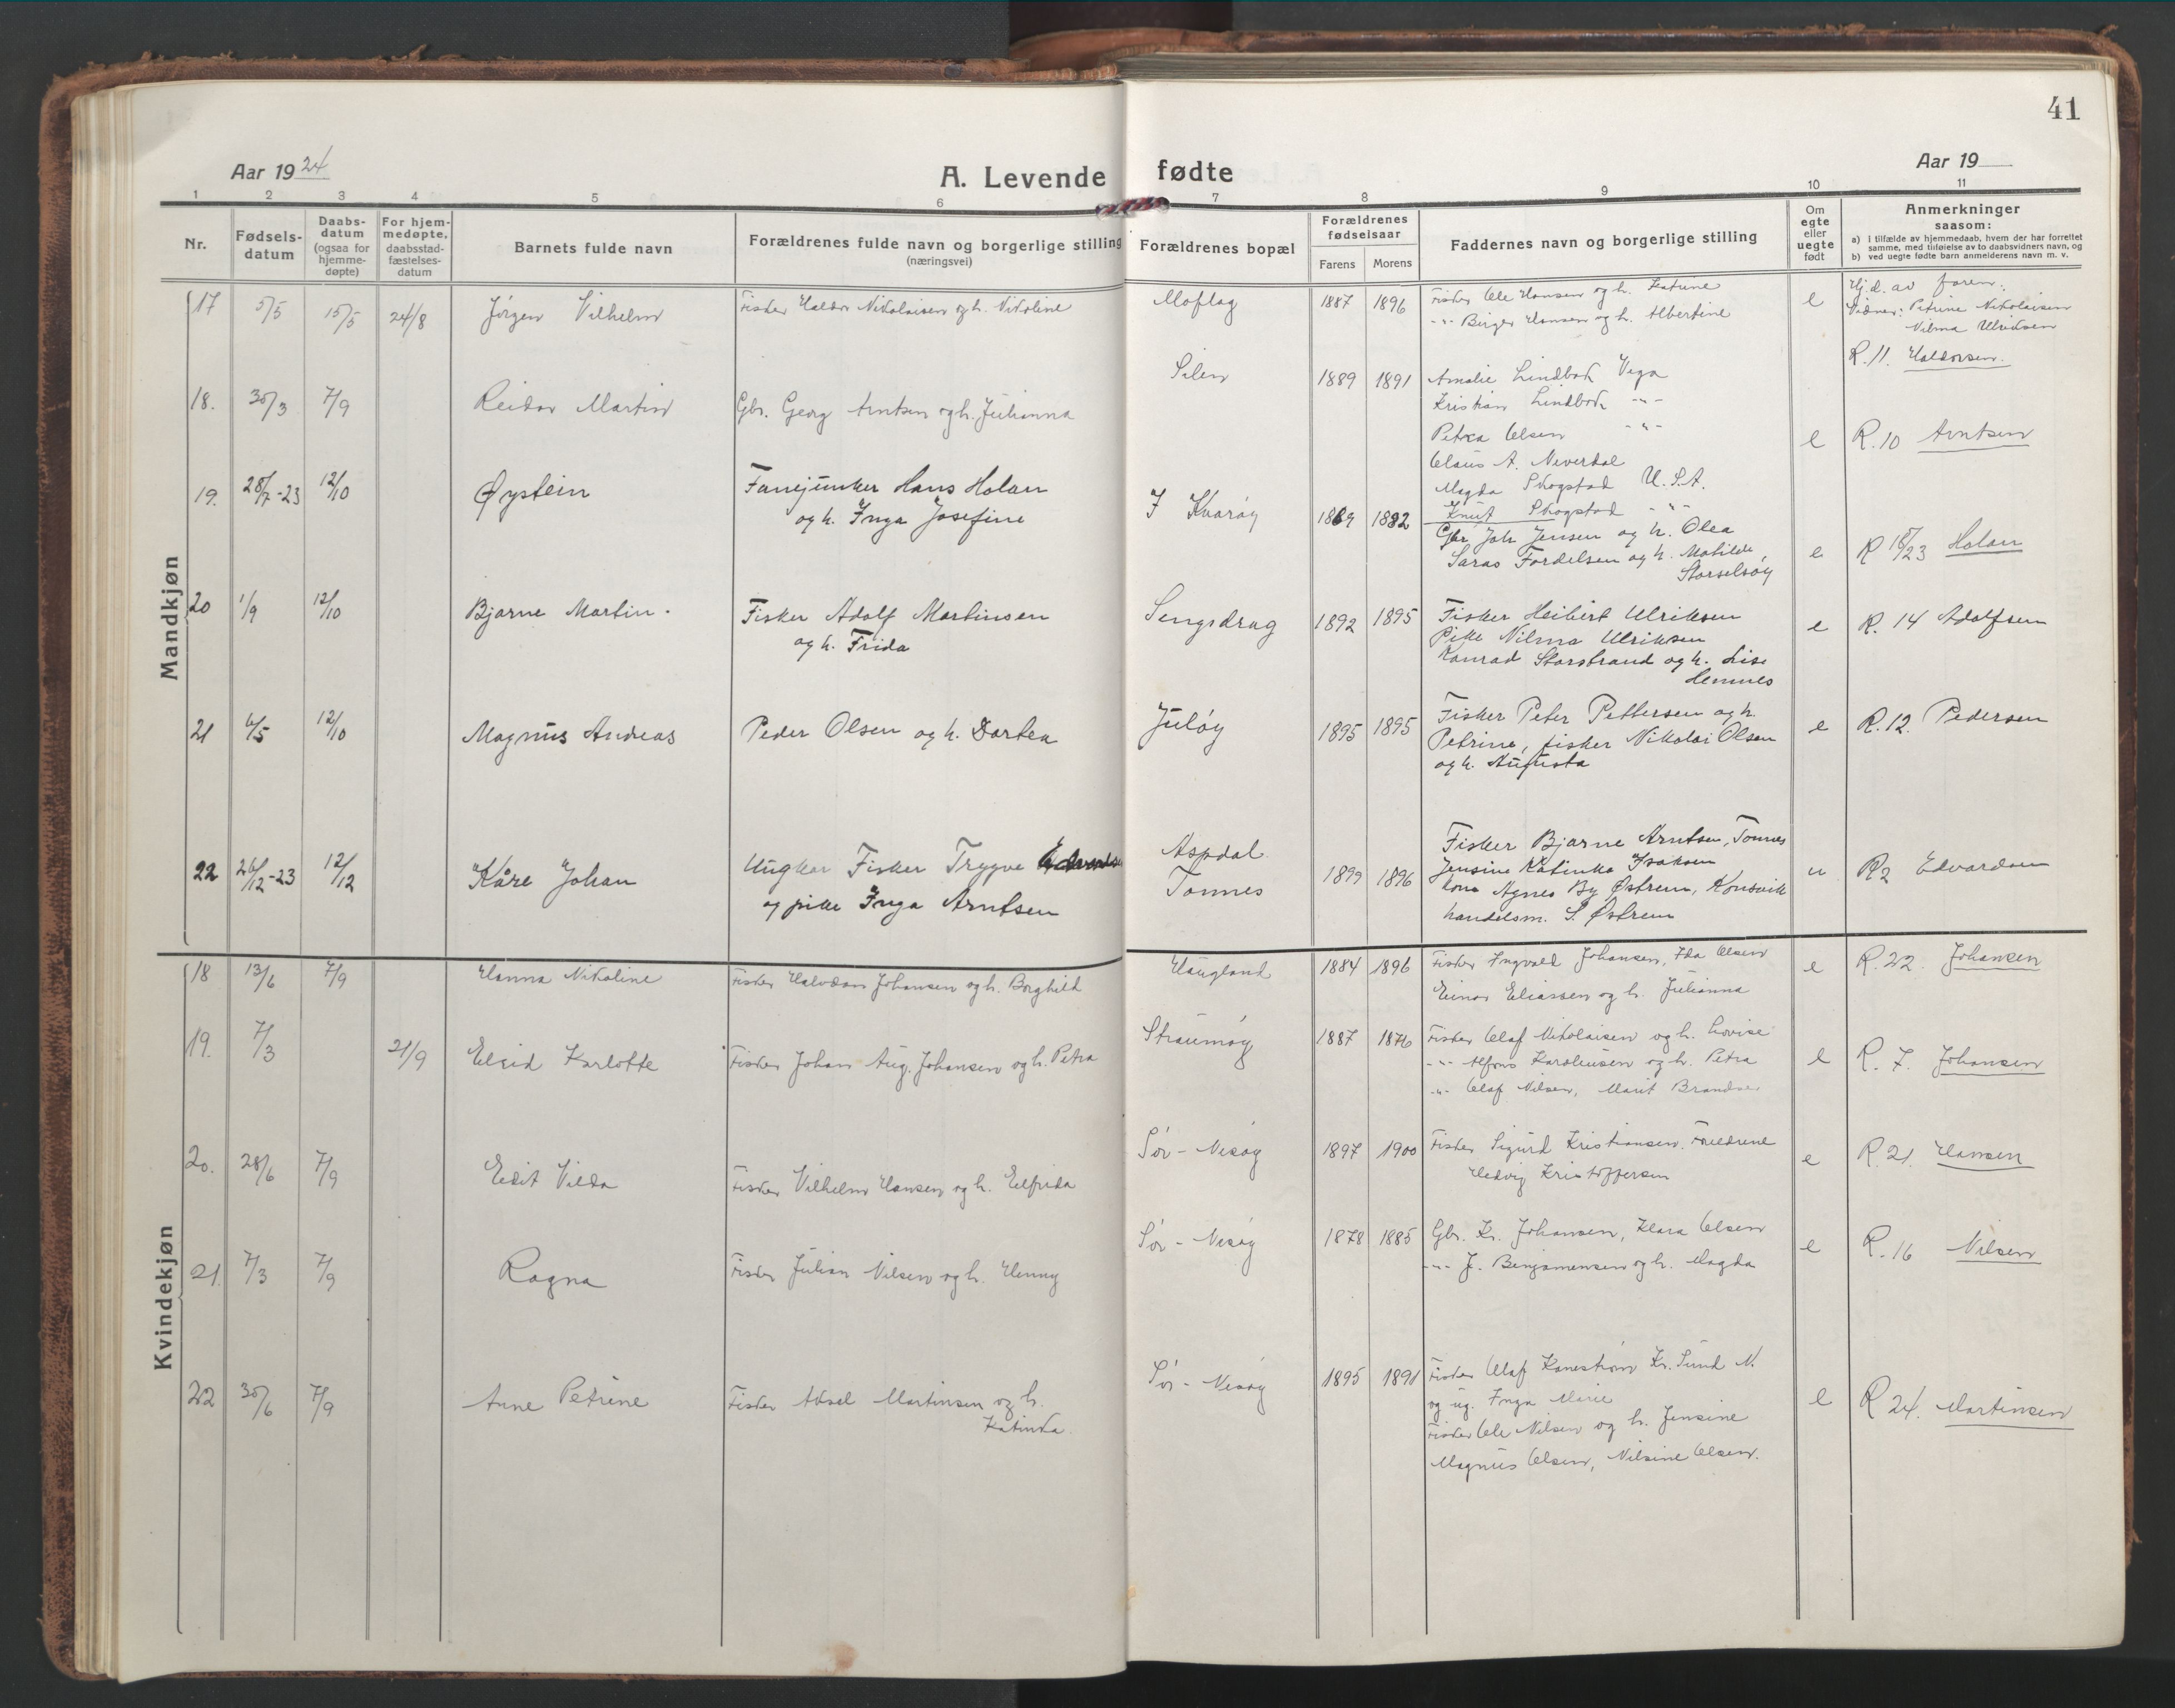 41
Aar 1924
A. Levende fødte
Aar 19
1 2 3 4 5 6 7 8 9 10 11
Nr.
Fødsels-
datum
Daabs-
datum
(ogsaa for
hjemme-
døpte)
For hjem-
medøpte,
daabsstad-
fæstelses-
datum
Barnets fulde navn
Forældrenes fulde navn og borgerlige stilling
(næringsvei)
Forældrenes bopæl
Forældrenes
fødselsaar
Farens Morens
Faddernes navn og borgerlige stilling
Om
egte
eller
uegte
født
Anmerkninger
saasom:
a) I tilfælde av hjemmedaab, hvem der har forrettet
samme, med tilføielse av to daabsvidners navn, og
b) ved uegte fødte barn anmelderens navn m. v.
Mandkjøn
17 5/5 15/5 24/8 Jörgen Vilhelm
Fisker Haldor Nikolaisen og h. Nikoline
Moflag 1887 1896
Fisker Ole Hansen og h. Katrine
-"- Birger Hansen og h. Albertine
e
Hj.d. av faren.
Vidner: Petrine Nikolaisen
Vilma Ulriksen
R. 11. Haldorsen.
18. 30/3 7/9 Reidar Martin
Gbr. Georg Arntsen og h. Julianna
Silen 1889 1891
Amalie Lindbak Vega
Kristian Lindbak -"-
Petra Olsen -"-
Claus A. Neverdal
Magda Skogstad U.S.A.
Knut Skogstad -"-
e R. 10 Arntsen
19. 28/7-23 12/10 Øystein
Fanejunker Hans Holan
og h. Inga Josefine
I Kvarøy 1869 1882
Gbr Joh Jensen og h. Olea
Saras Fordelsen og h. Matilde,
Storselsøy
e R 18/23 Holan
20 1/9 12/10 Bjarne Martin.
Fisker Adolf Martinsen
og h. Frida
Sengsdrag 1892 1895
Fisker Heibert Ulriksen
Pike Vilma Ulriksen
Konrad Storstrand og h. Lise
Hemnes
e R. 14 Adolfsen
21 6/5 12/10 Magnus Andreas
Peder Olsen og h. Dortea
Juløy 1895 1895
Fisker Peter Pettersen og h.
Petrine, fisker Nikolai Olsen
og h. Augusta
e R. 12. Pedersen
22 26/12-23 12/12 Kåre Johan
Ungkar Fisker Trygve Edvardsen
og pike Inga Arntsen
Aspdal
Tonnes
1899 1896
Fisker Bjarne Arntsen, Tonnes
Jensine Katinka Isaksen
kona Agnes By Østrem, Konsvik
handelsm. S. Østrem
u R2 Edvardsen
Kvindekjøn
18 13/6 7/9 Hanna Nikoline
Fisker Halvdan Johansen og h. Borghild
Haugland 1884 1896
Fisker Ingvald Johansen, Ida Olsen
Einar Eliassen og h. Julianna
e R. 22. Johansen
19. 7/3 21/9 Elsid Karlotte
Fisker Johan Aug. Johansen og h. Petra
Straumøy 1887 1876
Fisker Olaf Nikolaisen og h. Lovise
-"- Alfons Karoliusen og h. Petra
-"- Olaf Nilsen, Marit Brandser
e R. 7. Johansen
20. 28/6 7/9 Edit Vilda
Fisker Vilhelm Hansen og h. Elfrida
Sør-Nesøy 1897 1900
Fisker Sigurd Kristiansen. Foreldrene
Hedvig Kristoffersen
e R. 21. Hansen
21. 7/3 7/9 Ragna
Fisker Julian Nilsen og h. Henny
Sør-Nesøy 1878 1885
Gbr. Kr. Johansen, Klara Olsen
-"- J. Benjaminsen og h. Magda
e R. 16 Nilsen
22 30/6 7/9 Anne Petrine
Fisker Aksel Martinsen og h.
Katinka.
Sør-Nesøy 1895 1891
Fisker Olaf Kanestrøm Kr. Sund N.
og ug. Inga Marie
Fisker Ole Nilsen og h. Jensine
Magnus Olsen, Nilsine Olsen.
e R 24. Martinsen